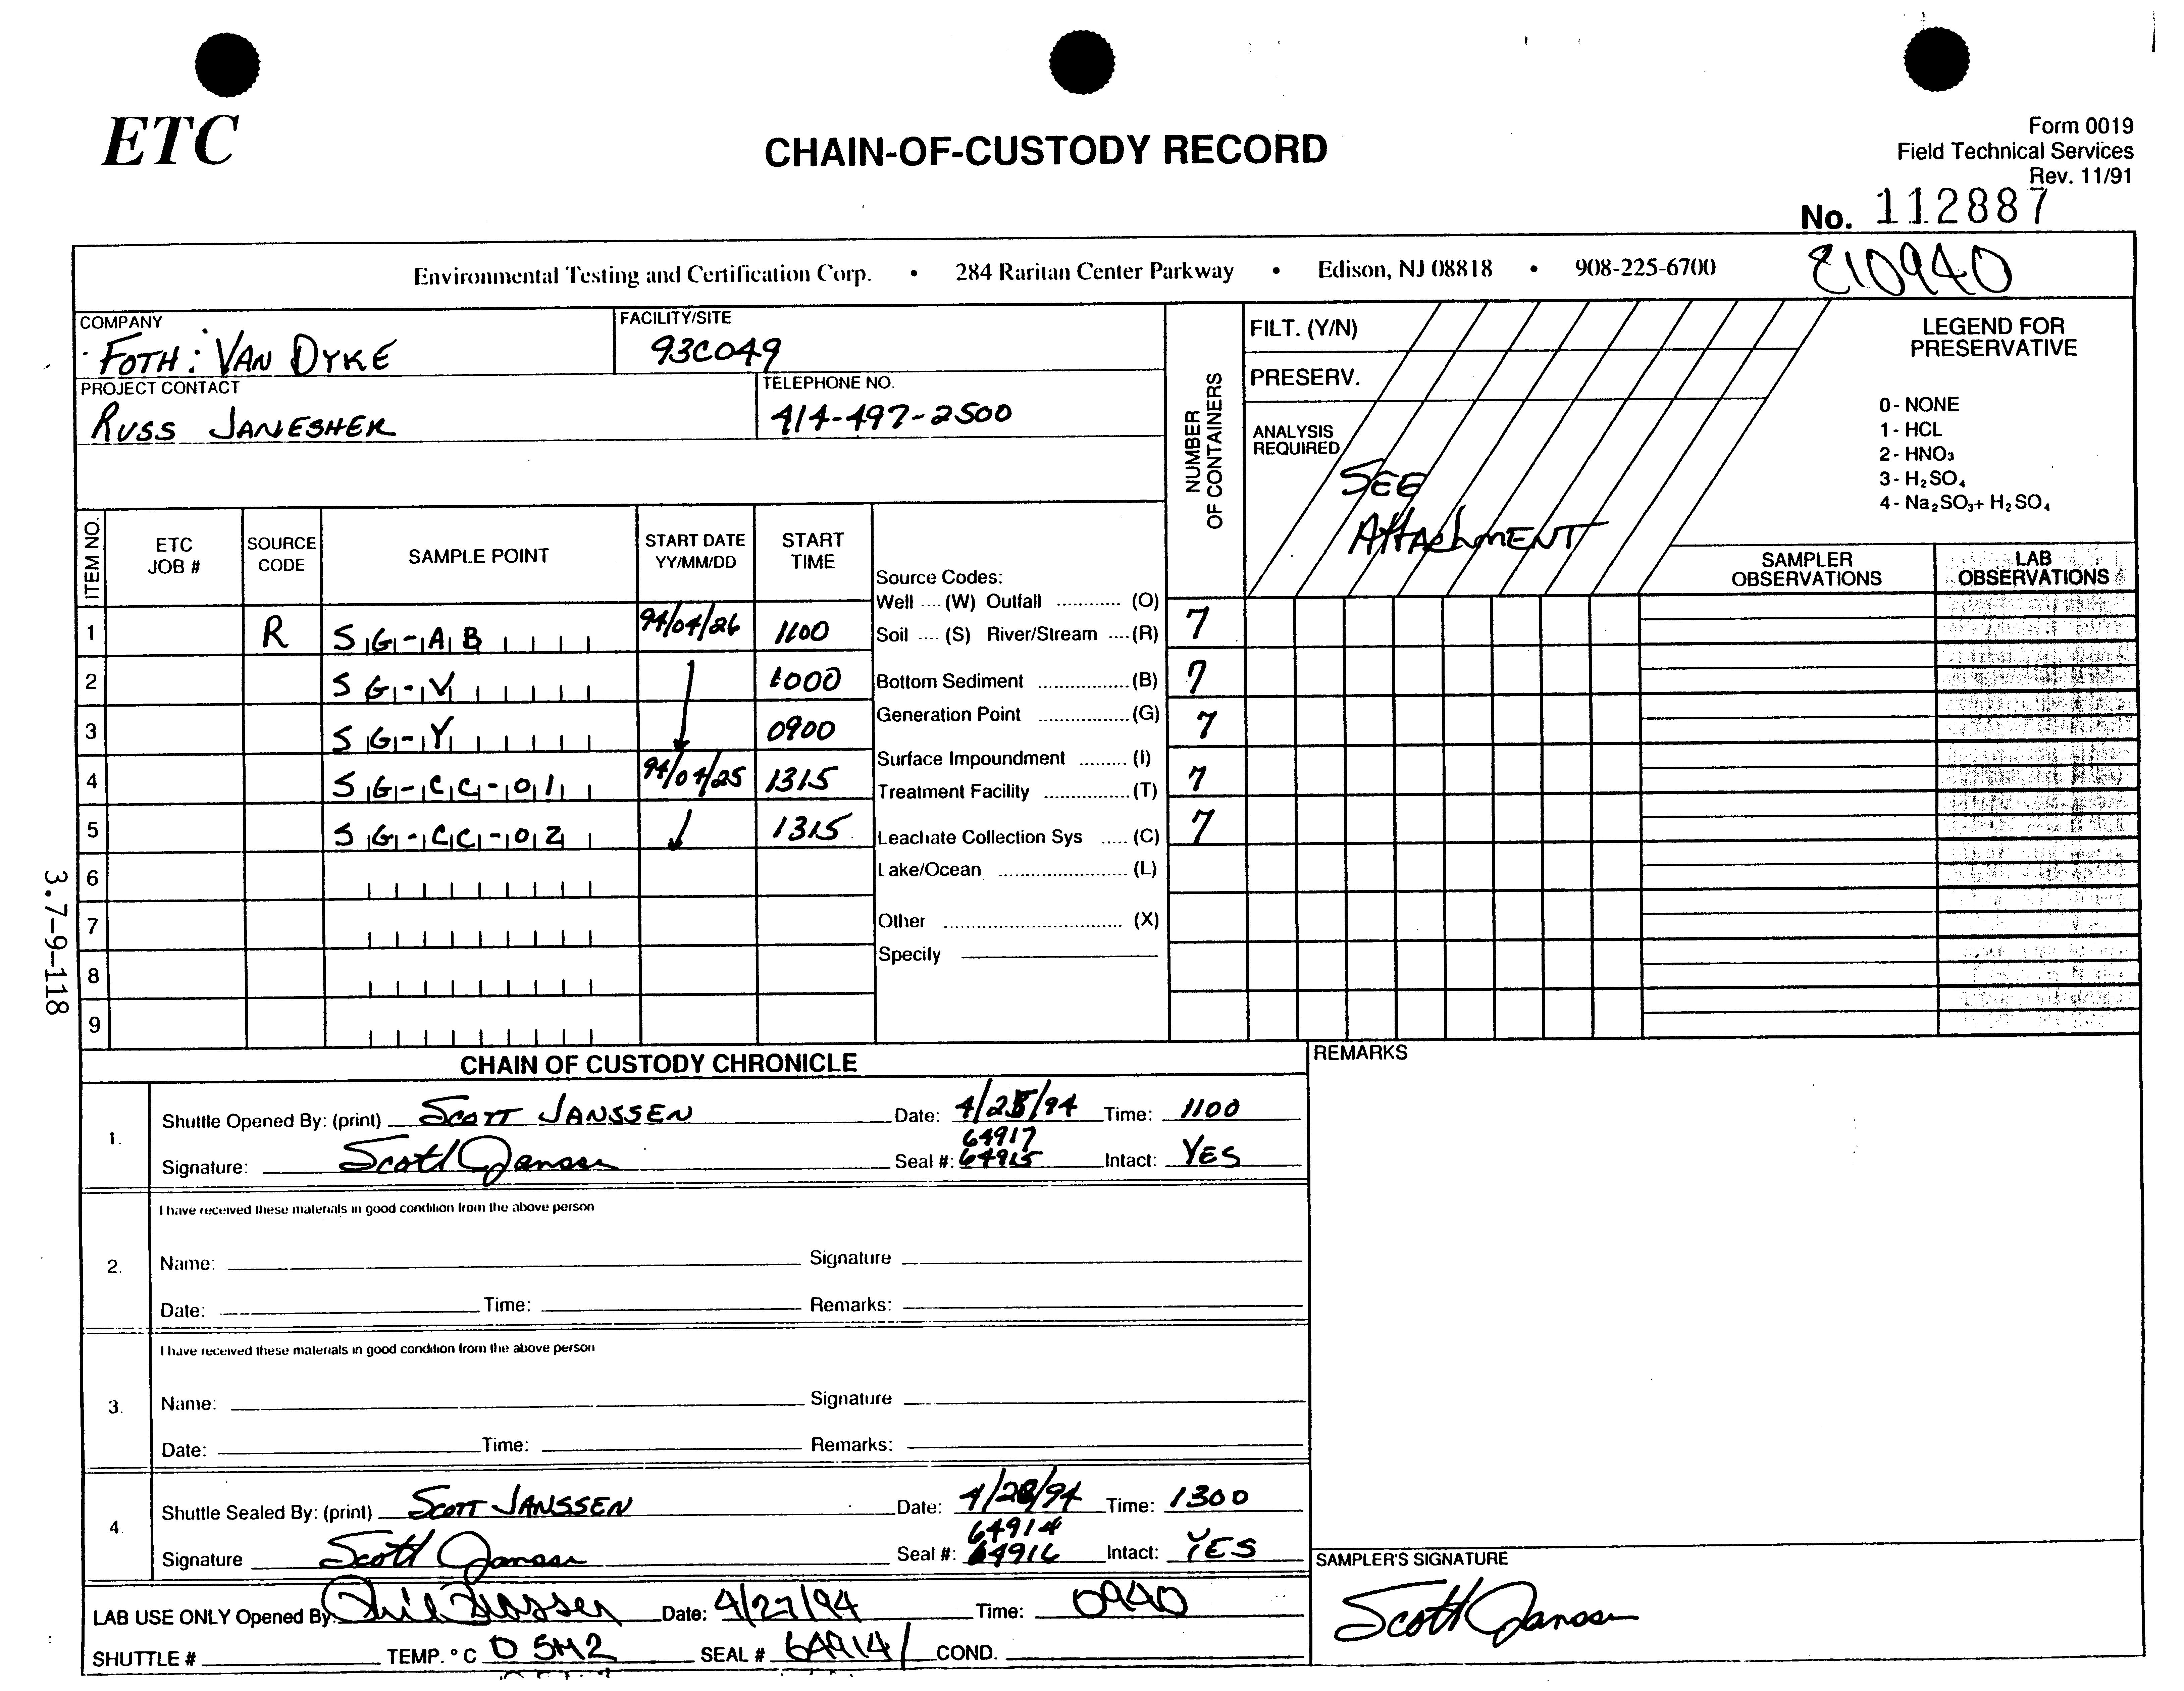 ETC
CHAIN-OF-CUSTODY RECORD
Form 0019
Field Technical Services
Rev. 11/91
No. 112887
Environmental Testing and Certification Corp. • 284 Raritan Center Parkway • Edison, NJ 08818 • 908-225-6700
E10940
COMPANY
FOTH : VAN DYKE
FACILITY/SITE
93C049
PROJECT CONTACT
RUSS JANESHER
TELEPHONE NO.
414-497-2500
NUMBER OF CONTAINERS
FILT. (Y/N)
PRESERV.
ANALYSIS REQUIRED
SEE
AttAchmENT
LEGEND FOR PRESERVATIVE
0 - NONE
1 - HCL
2 - HNO₃
3 - H₂SO₄
4 - Na₂SO₃+ H₂SO₄
ITEM NO.
ETC JOB #
SOURCE CODE
SAMPLE POINT
START DATE YY/MM/DD
START TIME
SAMPLER OBSERVATIONS
LAB OBSERVATIONS
Source Codes:
Well .... (W) Outfall ............ (O)
Soil .... (S) River/Stream .... (R)
Bottom Sediment ................. (B)
Generation Point .................. (G)
Surface Impoundment ......... (I)
Treatment Facility ................ (T)
Leachate Collection Sys ..... (C)
Lake/Ocean ........................ (L)
Other ................................ (X)
Specify
1 R SG-AB 94/04/26 1100 7
2 SG-V 1000 7
3 SG-Y 0900 7
4 SG-CC-01 94/04/25 1315 7
5 SG-CC-02 1315 7
6
7
8
9
3.7-9-118
CHAIN OF CUSTODY CHRONICLE
REMARKS
1.
Shuttle Opened By: (print) SCOTT JANSSEN Date: 4/25/94 Time: 1100
64917
Signature: Scott Janssen Seal #: 64915 Intact: YES
I have received these materials in good condition from the above person
2.
Name: Signature
Date: Time: Remarks:
I have received these materials in good condition from the above person
3.
Name: Signature
Date: Time: Remarks:
4.
Shuttle Sealed By: (print) SCOTT JANSSEN Date: 4/26/94 Time: 1300
64914
Signature Scott Janssen Seal #: 64916 Intact: YES
SAMPLER'S SIGNATURE
Scott Janssen
LAB USE ONLY Opened By: Phil Date: 4/27/94 Time: 0940
SHUTTLE # TEMP. °C SEAL # 64914/ COND.